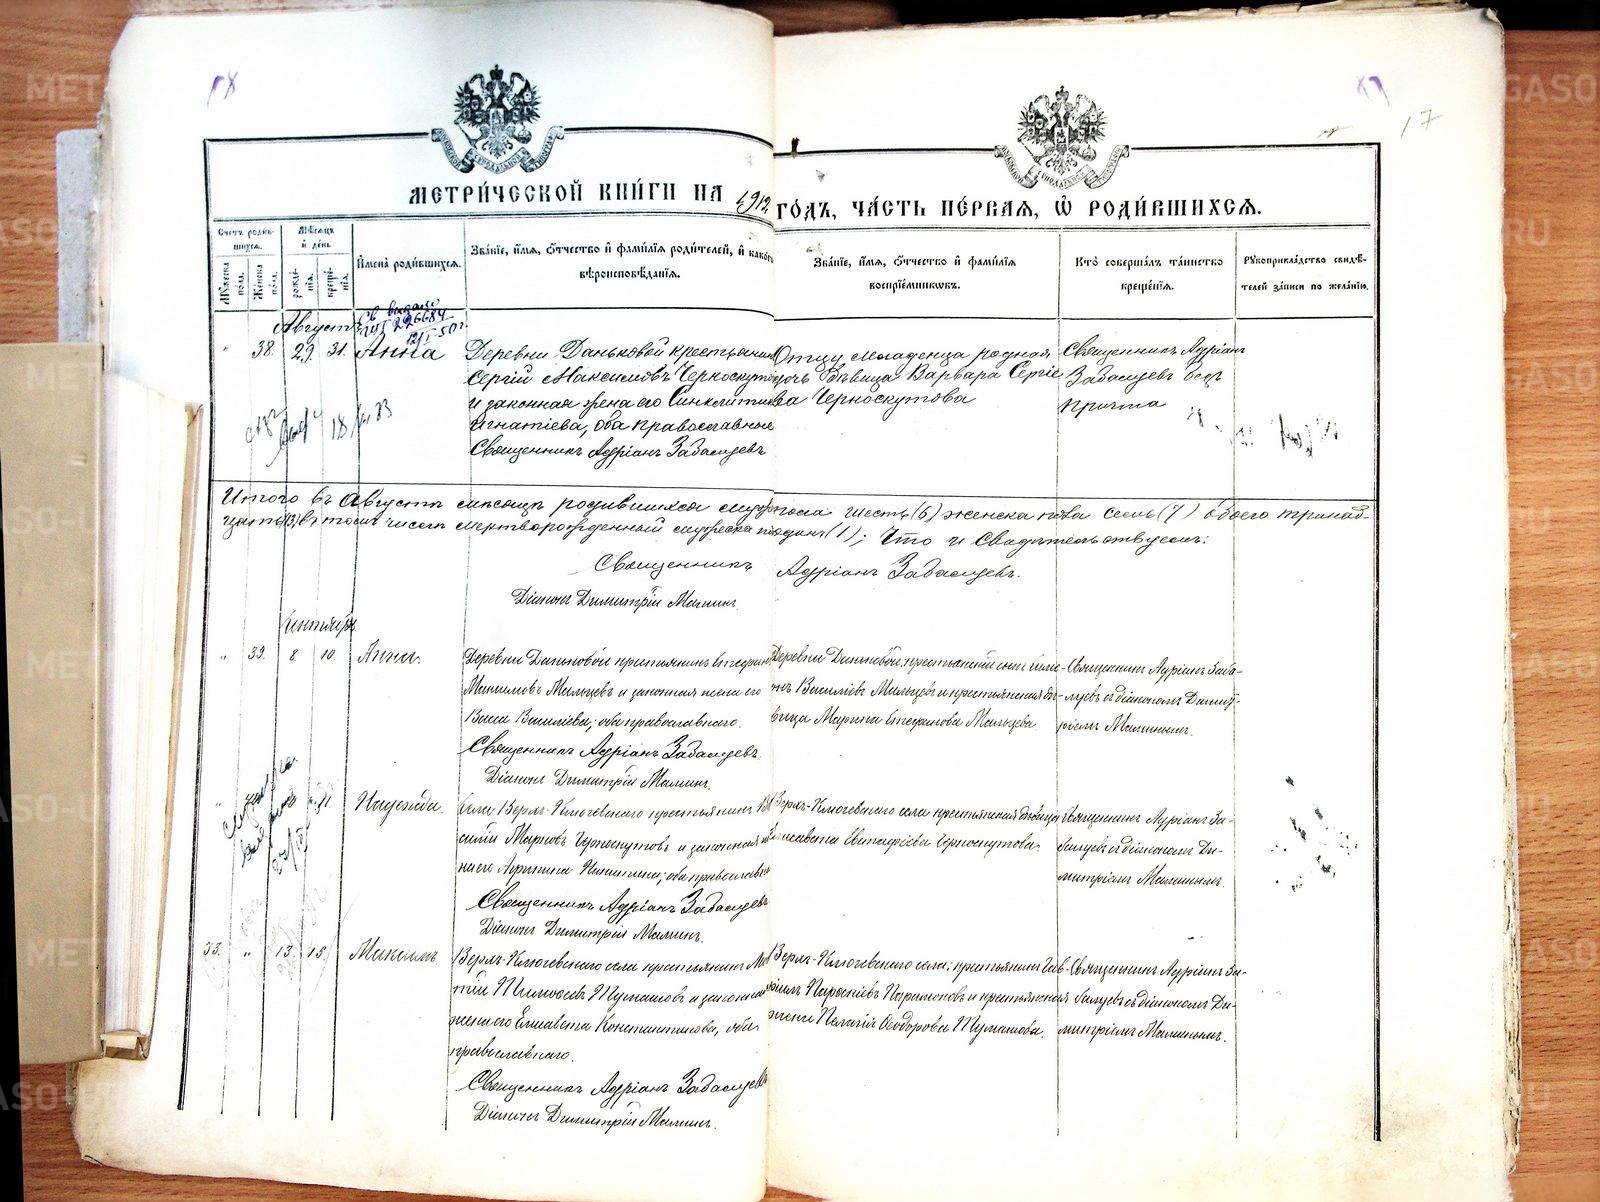 17
МЕТРИ́ЧЕСКОЙ КНИ́ГИ НА 1912 ГО́ДЪ, ЧА́СТЬ ПЕ́РВАЯ, Ѡ РОДИ́ВШИХСЯ.
Счетъ роди́вшихся.
Мѣсяцъ и день
Мужеска пола.
Женска пола.
рождéнія.
крещéнія.
Имена̀ роди́вшихся.
Зва́ніе, и́мя, о́тчество и фами́лія роди́телей, и како́го
вѣроисповѣ́данія.
Зва́ніе, и́мя, о́тчество и фами́лія
воспріе́мниковъ.
Кто̀ соверша́лъ та́инство
креще́нія.
Рукоприкла́дство свидѣ́-
телей за́писи по жела́нію.
Августъ
38. 29. 31. Анна
Деревни Даньковой крестьянинъ
Сергій Максимовъ Черноскутовъ
и законная жена его Синклитикія
Игнатіева, оба православные
Священникъ Адріанъ Забалуевъ
Отцу младенца родная
дочь дѣвица Варвара Сергіе
ва Черноскутова
Священникъ Адріанъ
Забалуевъ безъ
причта
Итого въ Августѣ мѣсяцѣ родившихся мужска пола шесть (6) женска пола семь (7) обоего тринад-
цать (13) въ томъ числѣ мертворожденный мужска пола одинъ (1); Что и Свидѣтельствуемъ:
Священникъ Адріанъ Забалуевъ.
Діаконъ Димитрій Малинъ
Сентябрь
39. 8. 10. Анна.
Деревни Даньковой крестьянинъ Стефанъ
Максимовъ Мальцевъ и законная жена его
Васса Василіева; оба православнаго.
Священникъ Адріанъ Забалуевъ.
Діаконъ Димитрій Малинъ.
Деревни Даньковой, крестьянскій сынъ
Василіевъ Мальцевъ и крестьянская дѣ-
вица Марина Стефанова Мальцева
Священникъ Адріанъ Заба-
луевъ съ діакономъ Димит-
ріемъ Малинымъ.
11. Надежда.
Села Верхъ-Ключевскаго крестьянинъ Ва
силій Марковъ Черноскутовъ и законная же
на его Агрипина Никитина; оба православн
Священникъ Адріанъ Забалуевъ
Діаконъ Димитрій Малинъ.
Верхъ-Ключевскаго села крестьянская дѣвица
Елисавета Евстафіева Черноскутова.
Священникъ Адріанъ За-
балуевъ съ діакономъ Ди-
митріемъ Малинымъ.
33. 13. 15. Максимъ.
Верхъ-Ключевскаго села крестьянинъ
Тимофеевъ Тумашовъ и законная
жена его Елисавета Константинова, оба
православнаго.
Священникъ Адріанъ Забалуевъ
Діаконъ Димитрій Малинъ.
Верхъ-Ключевскаго села: крестьянинъ Гав-
ріилъ Парамоновъ и крестьянская
Пелагія Ѳеодорова Тумашова.
Священникъ Адріанъ За-
балуевъ съ діакономъ Ди-
митріемъ Малинымъ.